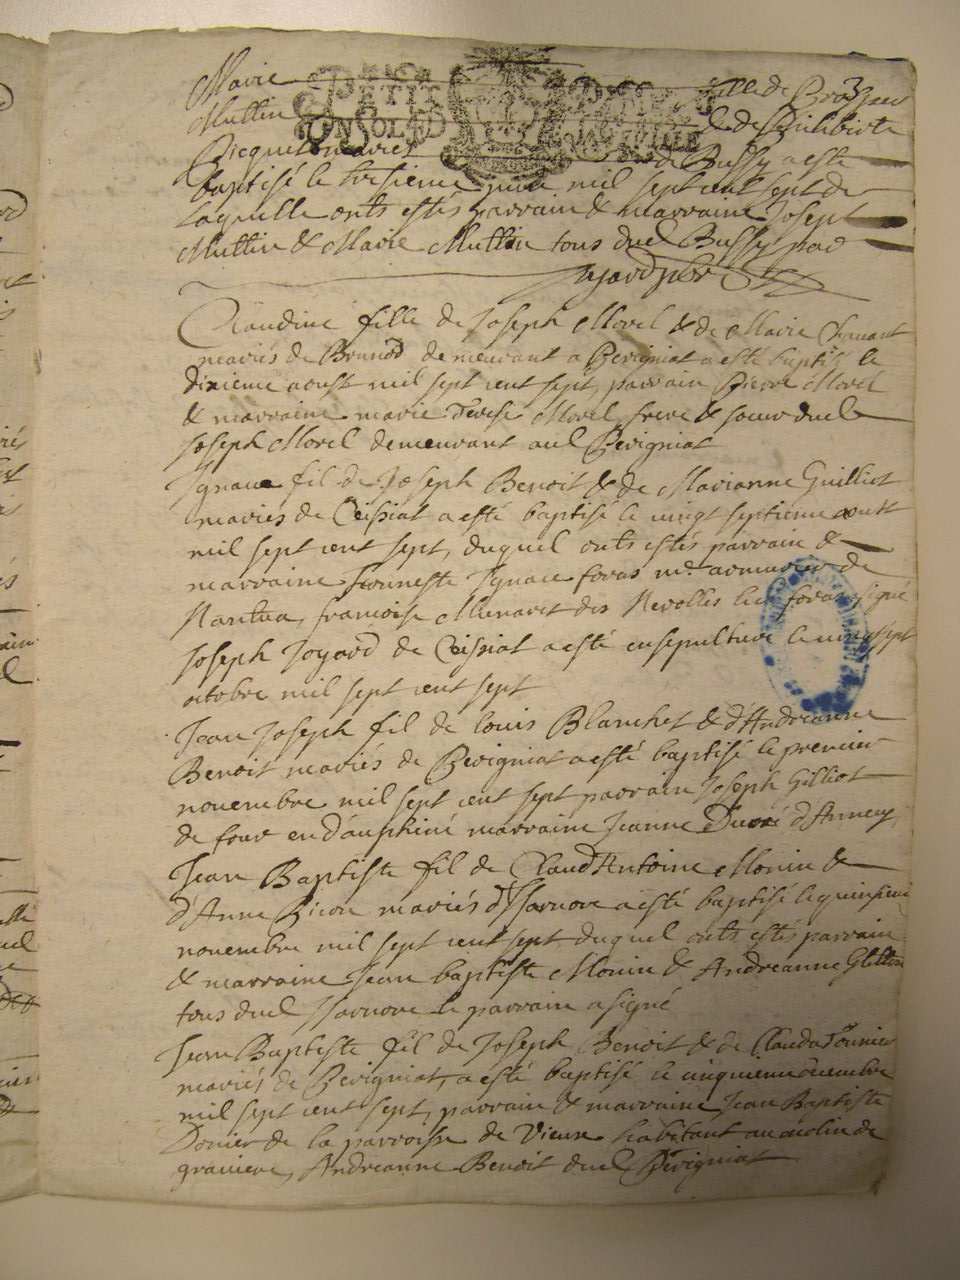 Marie fille de
Muttin & de Philiberte
Picquet mariés de Bussy a esté
baptisé le troisieme mil sept cent sept de
laquelle onts estés parrain & marraine Joseph
Muttin & Marie Muttin tous dud Bussy par
PETIT PAPIER
Claudine fille de Joseph Morel & de Marie
mariés de demeurant a Pevigniat a esté baptisé le
dixieme aoust mil sept cent sept, parrain Pierre Morel
& marraine marie Morel frere & soeur dud
Joseph Morel demeurant aud Pevigniat
Ignace fil de Joseph Benoit & de Marianne Guilliot
mariés de Ceissiat a esté baptisé le vingt septieme
mil sept cent sept, duquel onts estés parrain &
marraine honneste Ignace foras me armurier de
Nantua, francoise des Nerolles led foras signé
Joseph Joyard de Ceissiat a esté ensepulture le vingt sept
octobre mil sept cent sept
Jean Joseph fil de louis Blanchet & d'Andreanne
Benoit mariés de Pevigniat a esté baptisé le premier
novembre mil sept cent sept parrain Joseph Gilliot
de four en dauphiné marraine Jeanne d'Annecy
Jean Baptiste fil de Claud Antoine Monin &
d'Anne mariés d'Isarnore a esté baptisé le quinsieme
novembre mil sept cent sept duquel onts estés parrain
& marraine Jean baptiste Monin & Andreanne
tous dud Isarnore le parrain a signé
Jean Baptiste fil de Joseph Benoit & de Clauda
mariés de Pevigniat, a esté baptisé le cinquieme decembre
mil sept cent sept, parrain & marraine Jean Baptiste
de la parroisse de Vieux habitant au molin de
graviere, Andreanne Benoit dud Pevigniat